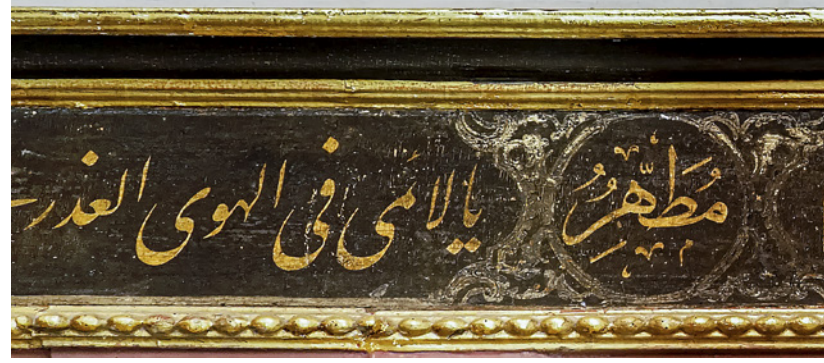 مُطَهَّرُ
يا لائمى فى الهوى العذر